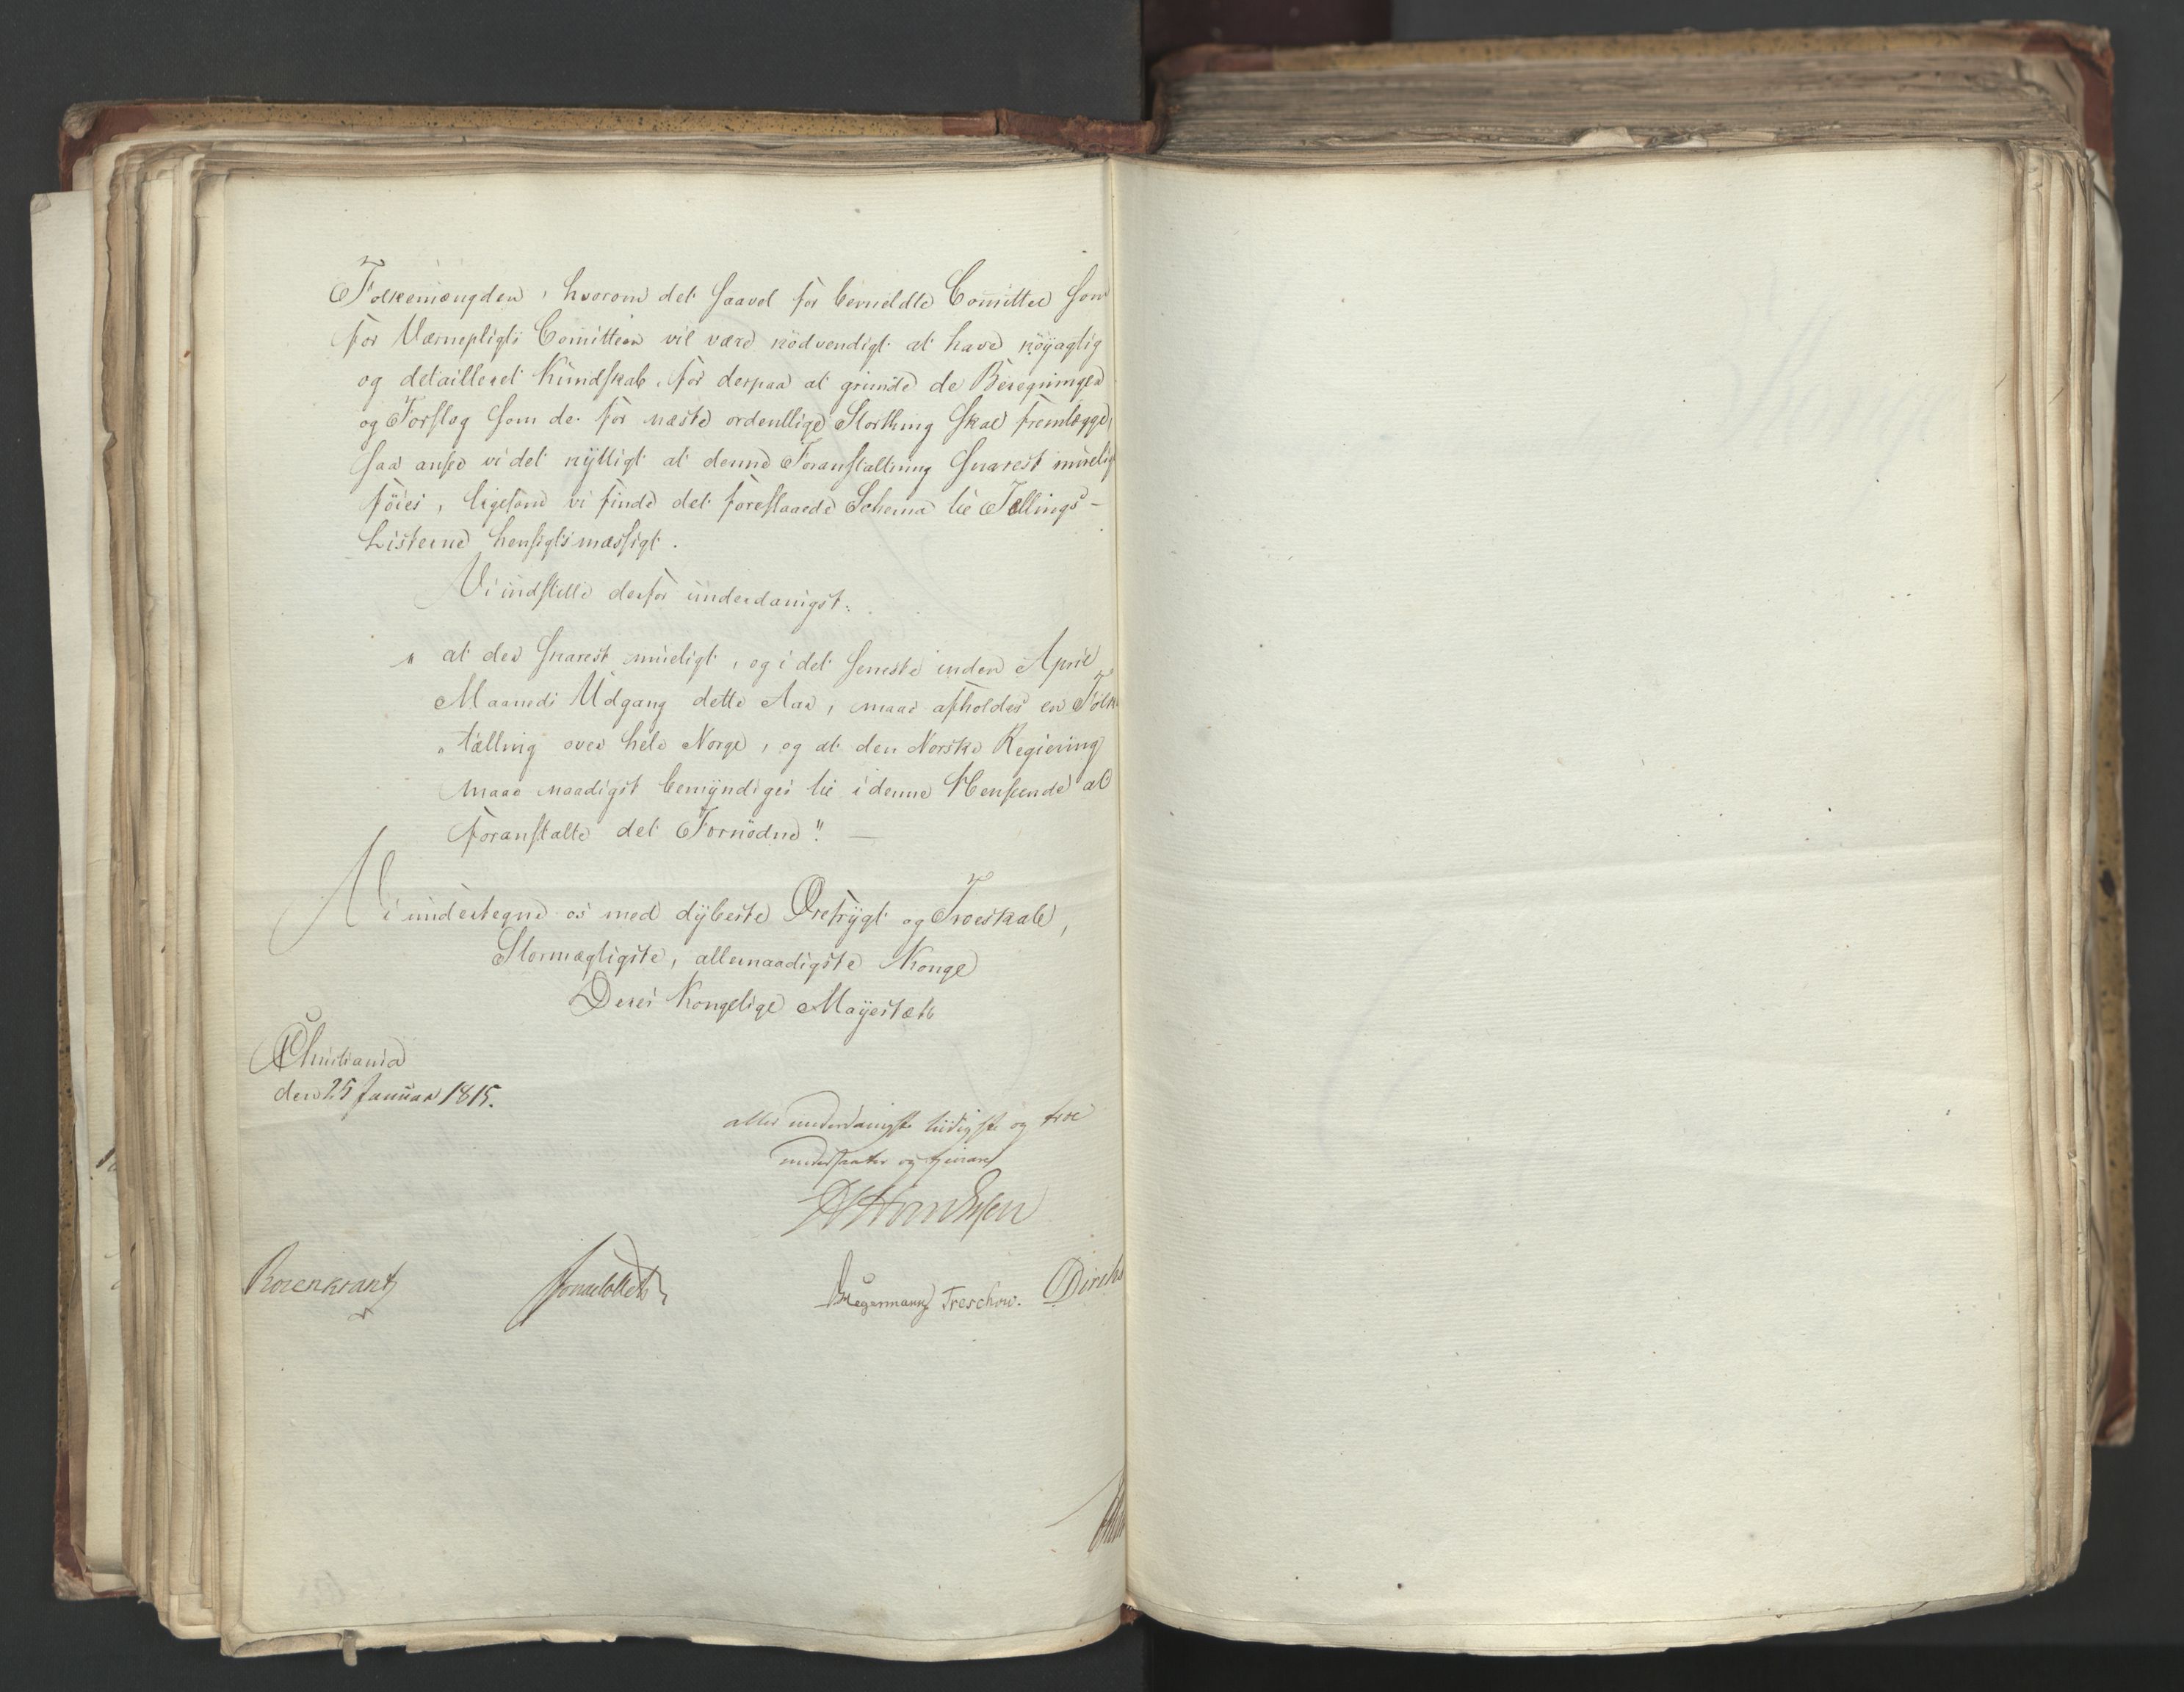 Folkemængden, hvorom det saavel for bemeldte Committee som
for Værnepligts Committeen vil være nödvendigt at have nöÿagtig
og detailleret Kundskab, for derpaa at grunde de Beregninger
og Forslag som de for næste ordentlige Storthing skal fremlægge,
saa ansee vi det nÿttigt at denne Foranstaltning snarest mueligt
föies, ligesom vi finde det foreslaaede Schema til Tællings-
Listerne hensigtsmæssigt.
Vi indstille derfor underdanigst:
" at der snarest mueligt, og i det seneste inden April
Maaneds Udgang dette Aar, maae afholdes en Folke
" tælling over hele Norge, og at den Norske Regiering
maae naadigst bemÿndiges til i denne Henseende at
foranstalte det Fornödne". —
Vi undertegne os med dÿbeste Ærefrÿgt og Troeskab,
Stormægtigste, allernaadigste Konge
Deres Kongelige Maÿestæts
Christiania
den 25 Januar 1815.
aller underdanigste lÿdigste og troe
undersaatter og tjenere
Rosenkrantz
Hegermann Treschow. Diriks